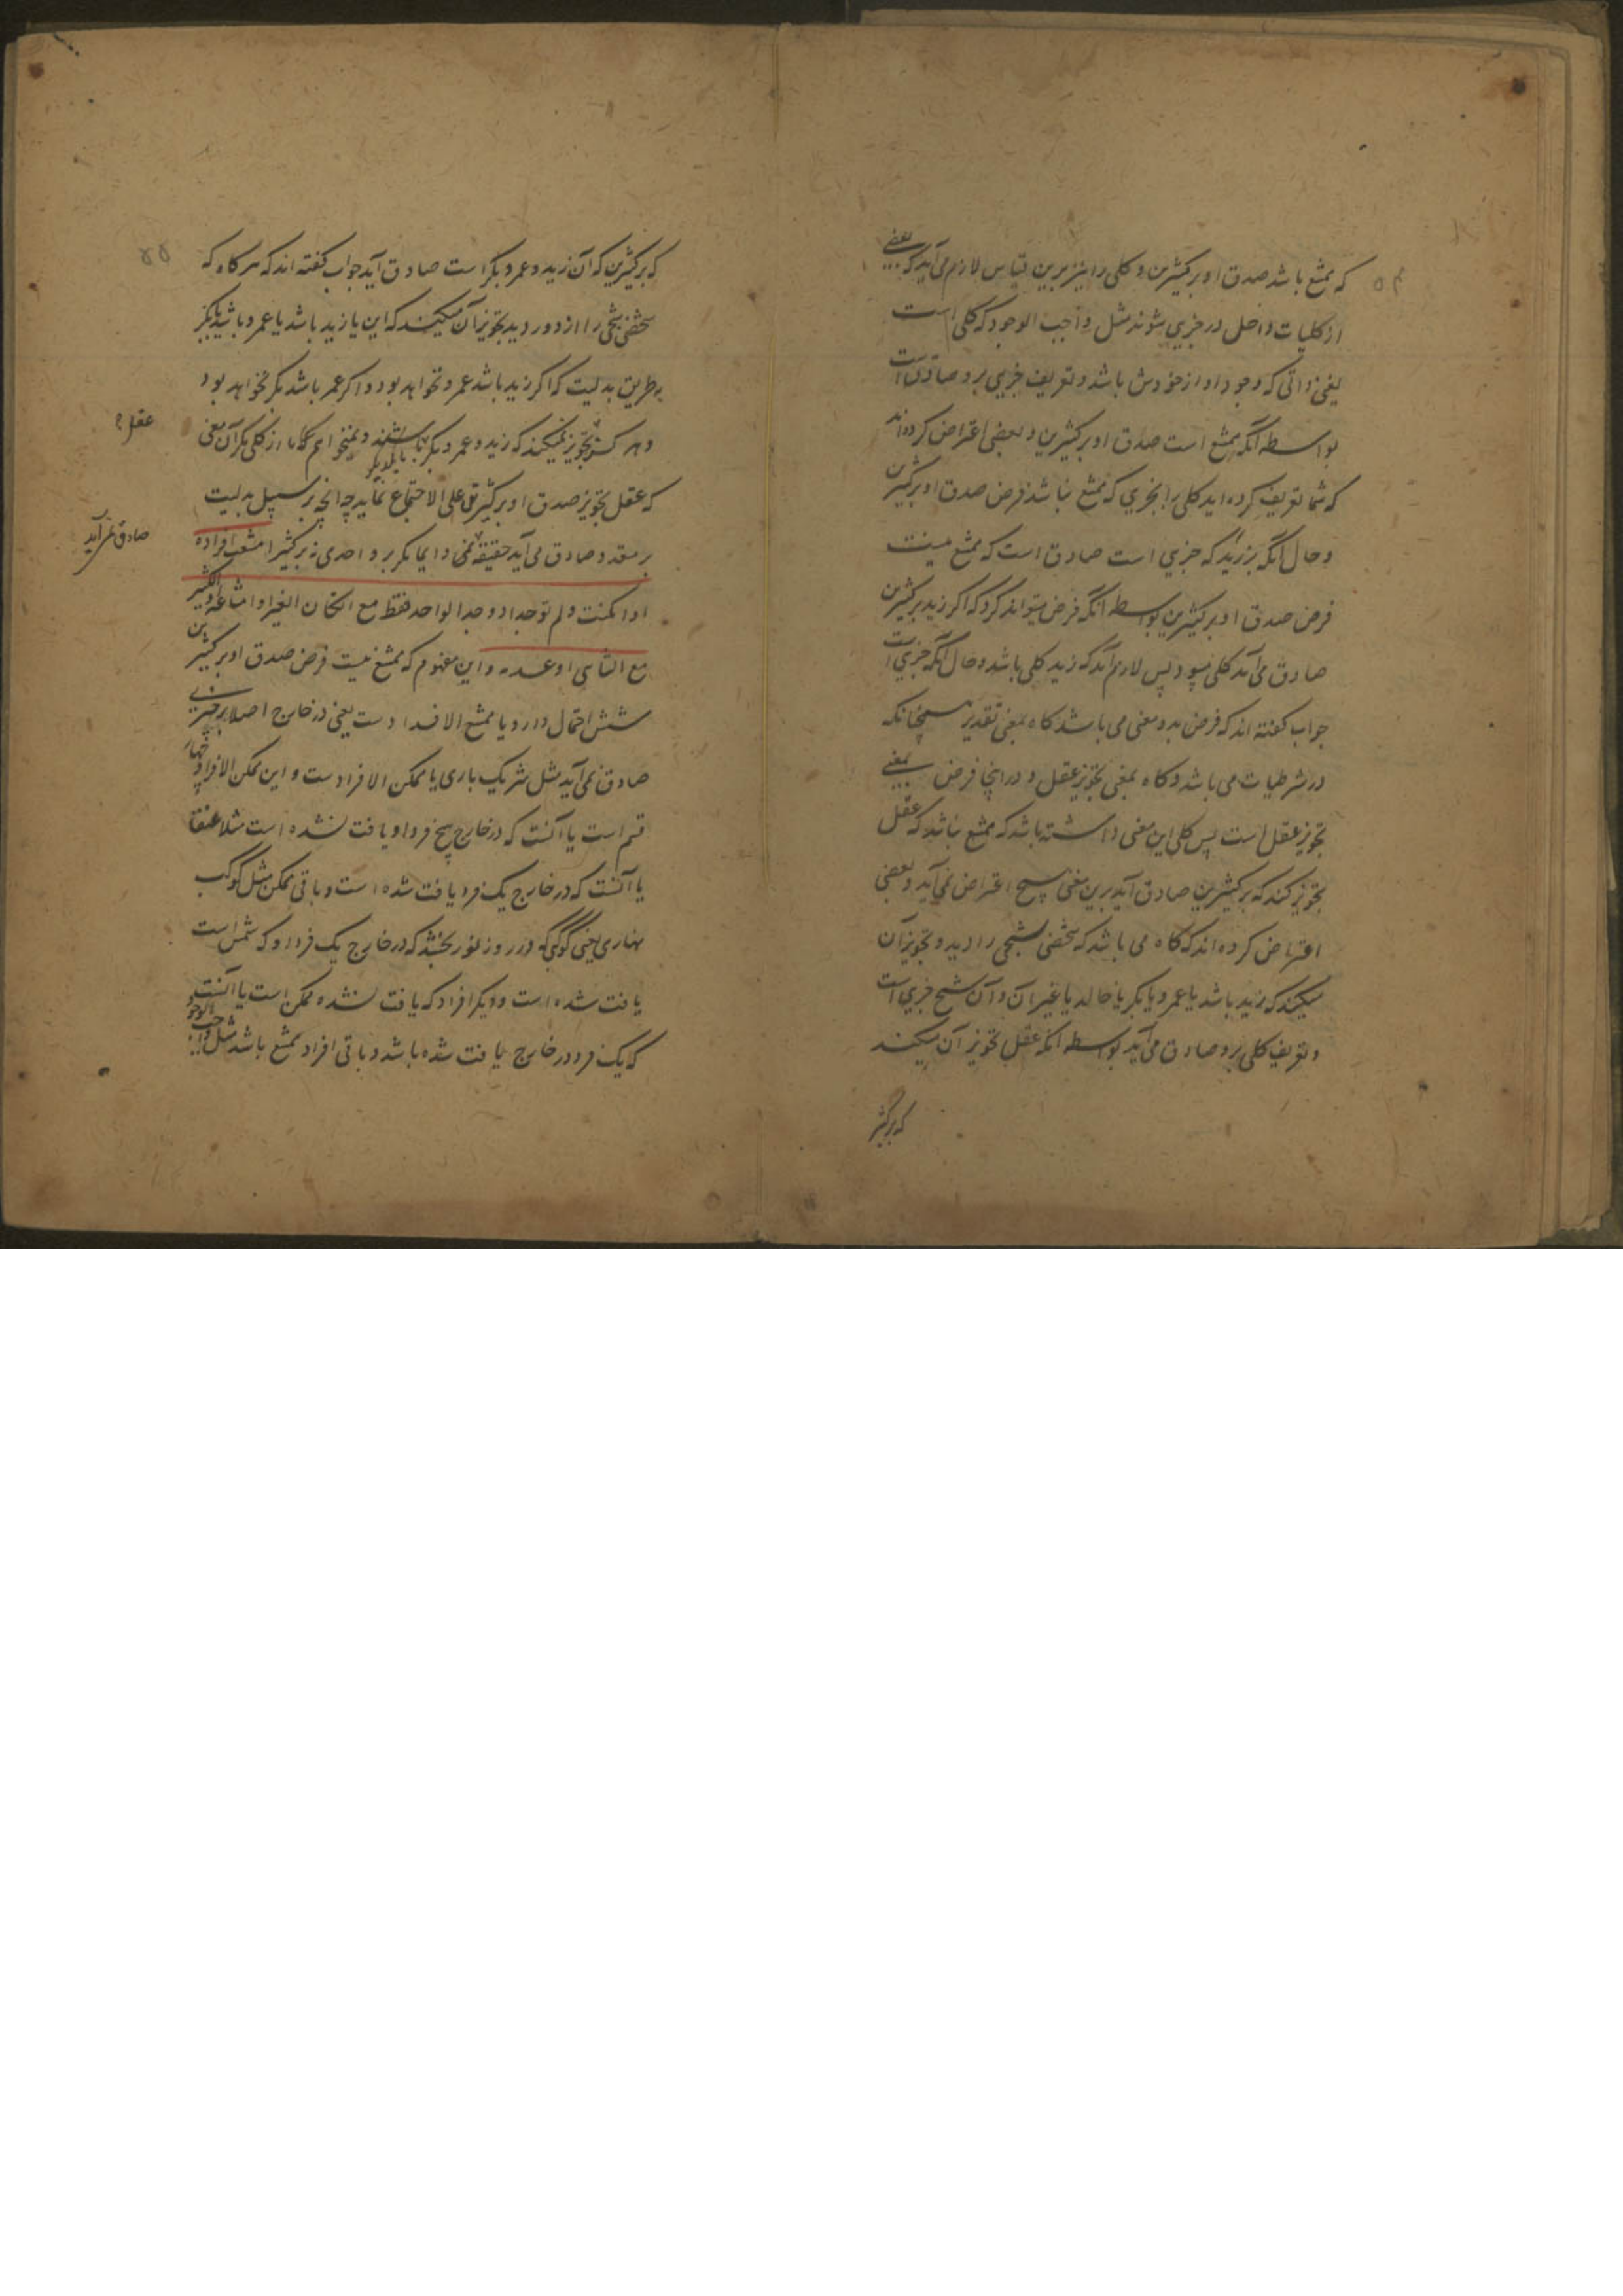 ۵۴
که ممتنع باشد صدق او بر کثیرین و کلی را نیز برین قیاس لازم می‌آید که بعضی
از کلیات داخل در جزیی شوند مثل واجب الوجود که کلی است
یعنی ذاتی که وجود او از خودش باشد و تعریف جزیی برو صادق است
بواسطه آنکه ممتنع است صدق او بر کثیرین و بعضی اعتراض کرده‌اند
که شما تعریف کرده اید کلی را بجزیی که ممتنع نباشد فرض صدق او بر کثیرین
و حال آنکه بر زید که جزیی است صادق است که ممتنع نیست
فرض صدق او بر کثیرین بواسطه آنکه فرض میتواند کرد که اگر زید بر کثیرین
صادق می‌آمد کلی میبود پس لازم آمد که زید کلی باشد و حال آنکه جزیی است
جواب گفته اند که فرض بدو معنی می باشد گاه بمعنی تقدیر همچنانکه
در شرطیات می باشد و گاه بمعنی تجویز عقل و در اینجا فرض بمعنی
تجویز عقل است پس کلی این معنی داشته باشد که ممتنع نباشد که عقل
تجویز کند که بر کثیرین صادق آید برین معنی هیچ اعتراض نمی‌آید و بعضی
اعتراض کرده‌اند که گاه می باشد که شخصی شبحی را دیده و تجویز آن
میکند که زید باشد یا عمرو یا بکر یا خالد یا غیر آن و آن شبح جزیی است
و تعریف کلی برو صادق می‌آید بواسطه آنکه عقل تجویز آن میکند
که بر کثیر
۵۵
که بر کثیرین که آن زید و عمرو و بکر است صادق آید جواب گفته اند که هرگاه که
شخصی شبحی را از دور دید تجویز آن میکند که این یا زید باشد یا عمرو باشد یا بکر
بطریق بدلیت که اگر زید باشد عمرو نخواهد بود و اگر عمر باشد بکر نخواهد بود
و هرگز تجویز نمیکند که زید و عمرو بکر باشند و نمیخواهیم ما از کلی مگر آن معنی
عقل
که عقل تجویز صدق او بر کثیرین علی الاجتماع نماید چه آنچه بر سبیل بدلیت
بر متعدد صادق می آید حقیقة نمی دایما مگر بر واحدی نه بر کثیر امتنعت افراده
صادق نمی آید
او امکنت و لم توجد او وجد الواحد فقط مع امکان الغیر او امتناعه و الکثیر
مع التناهی او عدمه و این مفهوم که ممتنع نیست فرض صدق او بر کثیرین
شش احتمال دارد یا ممتنع الافرادست یعنی در خارج اصلا بر چیزی
صادق نمی آید مثل شریک باری یا ممکن الافرادست و این ممکن الافراد
قسم است یا آنست که در خارج هیچ فرد او یافت نشده است مثلا عنقا
یا آنست که در خارج یک فرد یافت شده است و باقی ممکن مثل کوکب
نهاری یعنی کوکبی که در روز نور بخشد که در خارج یک فرد او که شمس است
یافت شده است و دیگر افراد که یافت نشده ممکن است یا آنست
که یک فرد در خارج یافت شده باشد و باقی افراد ممتنع باشد مثل واجب الوجود